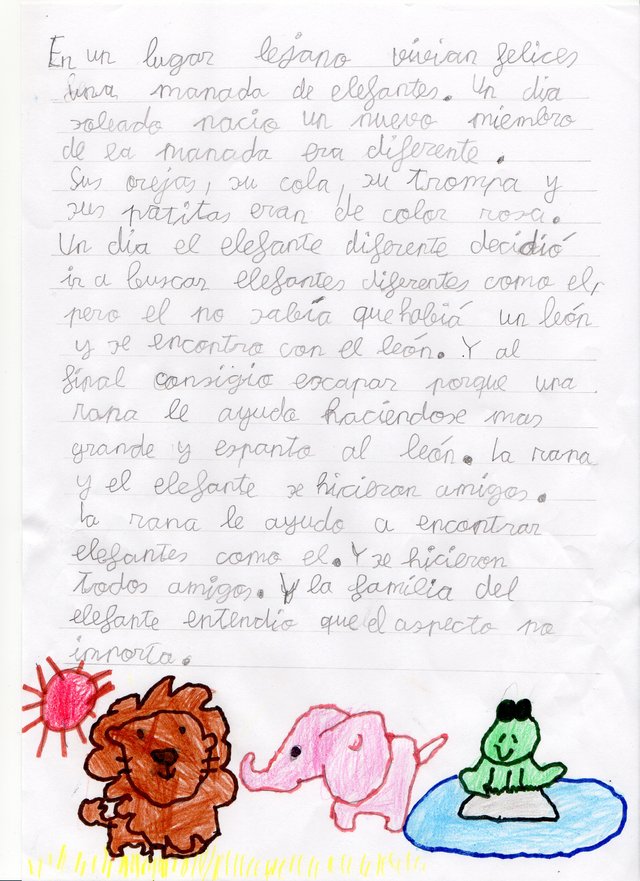 En un lugar lejano vivian felices
una manada de elefantes. Un dia
soleado nacio un nuevo miembro
de la manada era diferente.
Sus orejas, su cola, su trompa y
sus patitas eran de color rosa.
Un dia el elefante diferente decidió
ir a buscar elefantes diferentes como el,
pero el no sabía que habiá un león
y se encontro con el león. Y al
final consigio escapar porque una
rana le ayudo haciéndose mas
grande y espanto al león. La rana
y el elefante se hicieron amigos.
La rana le ayudo a encontrar
elefantes como el. Y se hicieron
todos amigos. Y la familia del
elefante entendio que el aspecto no
importa.